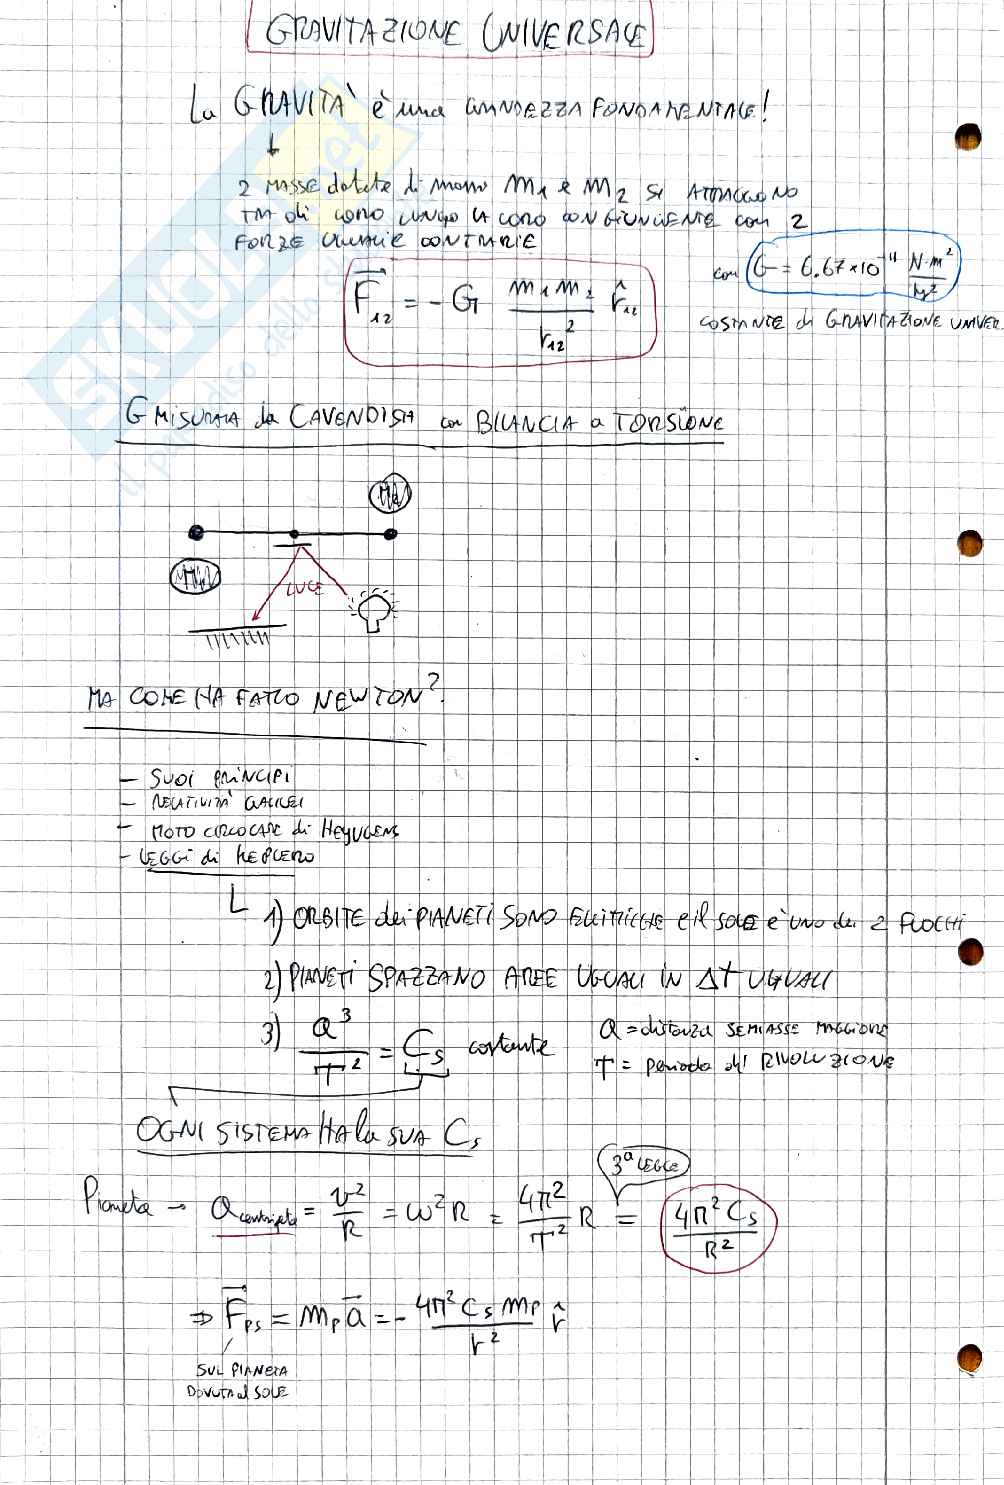 GRAVITAZIONE UNIVERSALE
La GRAVITA' è una GRANDEZZA FONDAMENTALE!
↓
2 MASSE dotate di massa m1 e m2 SI ATTRAGGONO
TRA di LORO LUNGO LA LORO CONGIUNGENTE con 2
FORZE UGUALI E CONTRARIE
F⃗12 = - G m1 m2 / r12² r̂12
con G = 6.67 × 10⁻¹¹ N·m² / kg²
COSTANTE di GRAVITAZIONE UNIVER.
G MISURATA da CAVENDISH con BILANCIA a TORSIONE
LUCE
MA COME HA FATTO NEWTON?
- SUOI PRINCIPI
- RELATIVITA' GALILEI
- MOTO CIRCOLARE di HEYUGENS
- LEGGI di KEPLERO
1) ORBITE dei PIANETI SONO ELLITTICHE e il SOLE è UNO dei 2 FUOCHI
2) PIANETI SPAZZANO AREE UGUALI IN Δt UGUALI
3) a³ / T² = Cs costante
a = distanza SEMIASSE MAGGIORE
T = periodo di RIVOLUZIONE
OGNI SISTEMA HA la SUA Cs
3ª LEGGE
Pianeta → a centripeta = v² / R = ω² R = 4π² / T² R = 4π² Cs / R²
⇒ F⃗PS = mP a⃗ = - 4π² Cs mP / r² r̂
SUL PIANETA
DOVUTA al SOLE
SKUOLA.net
il paradiso dello studente